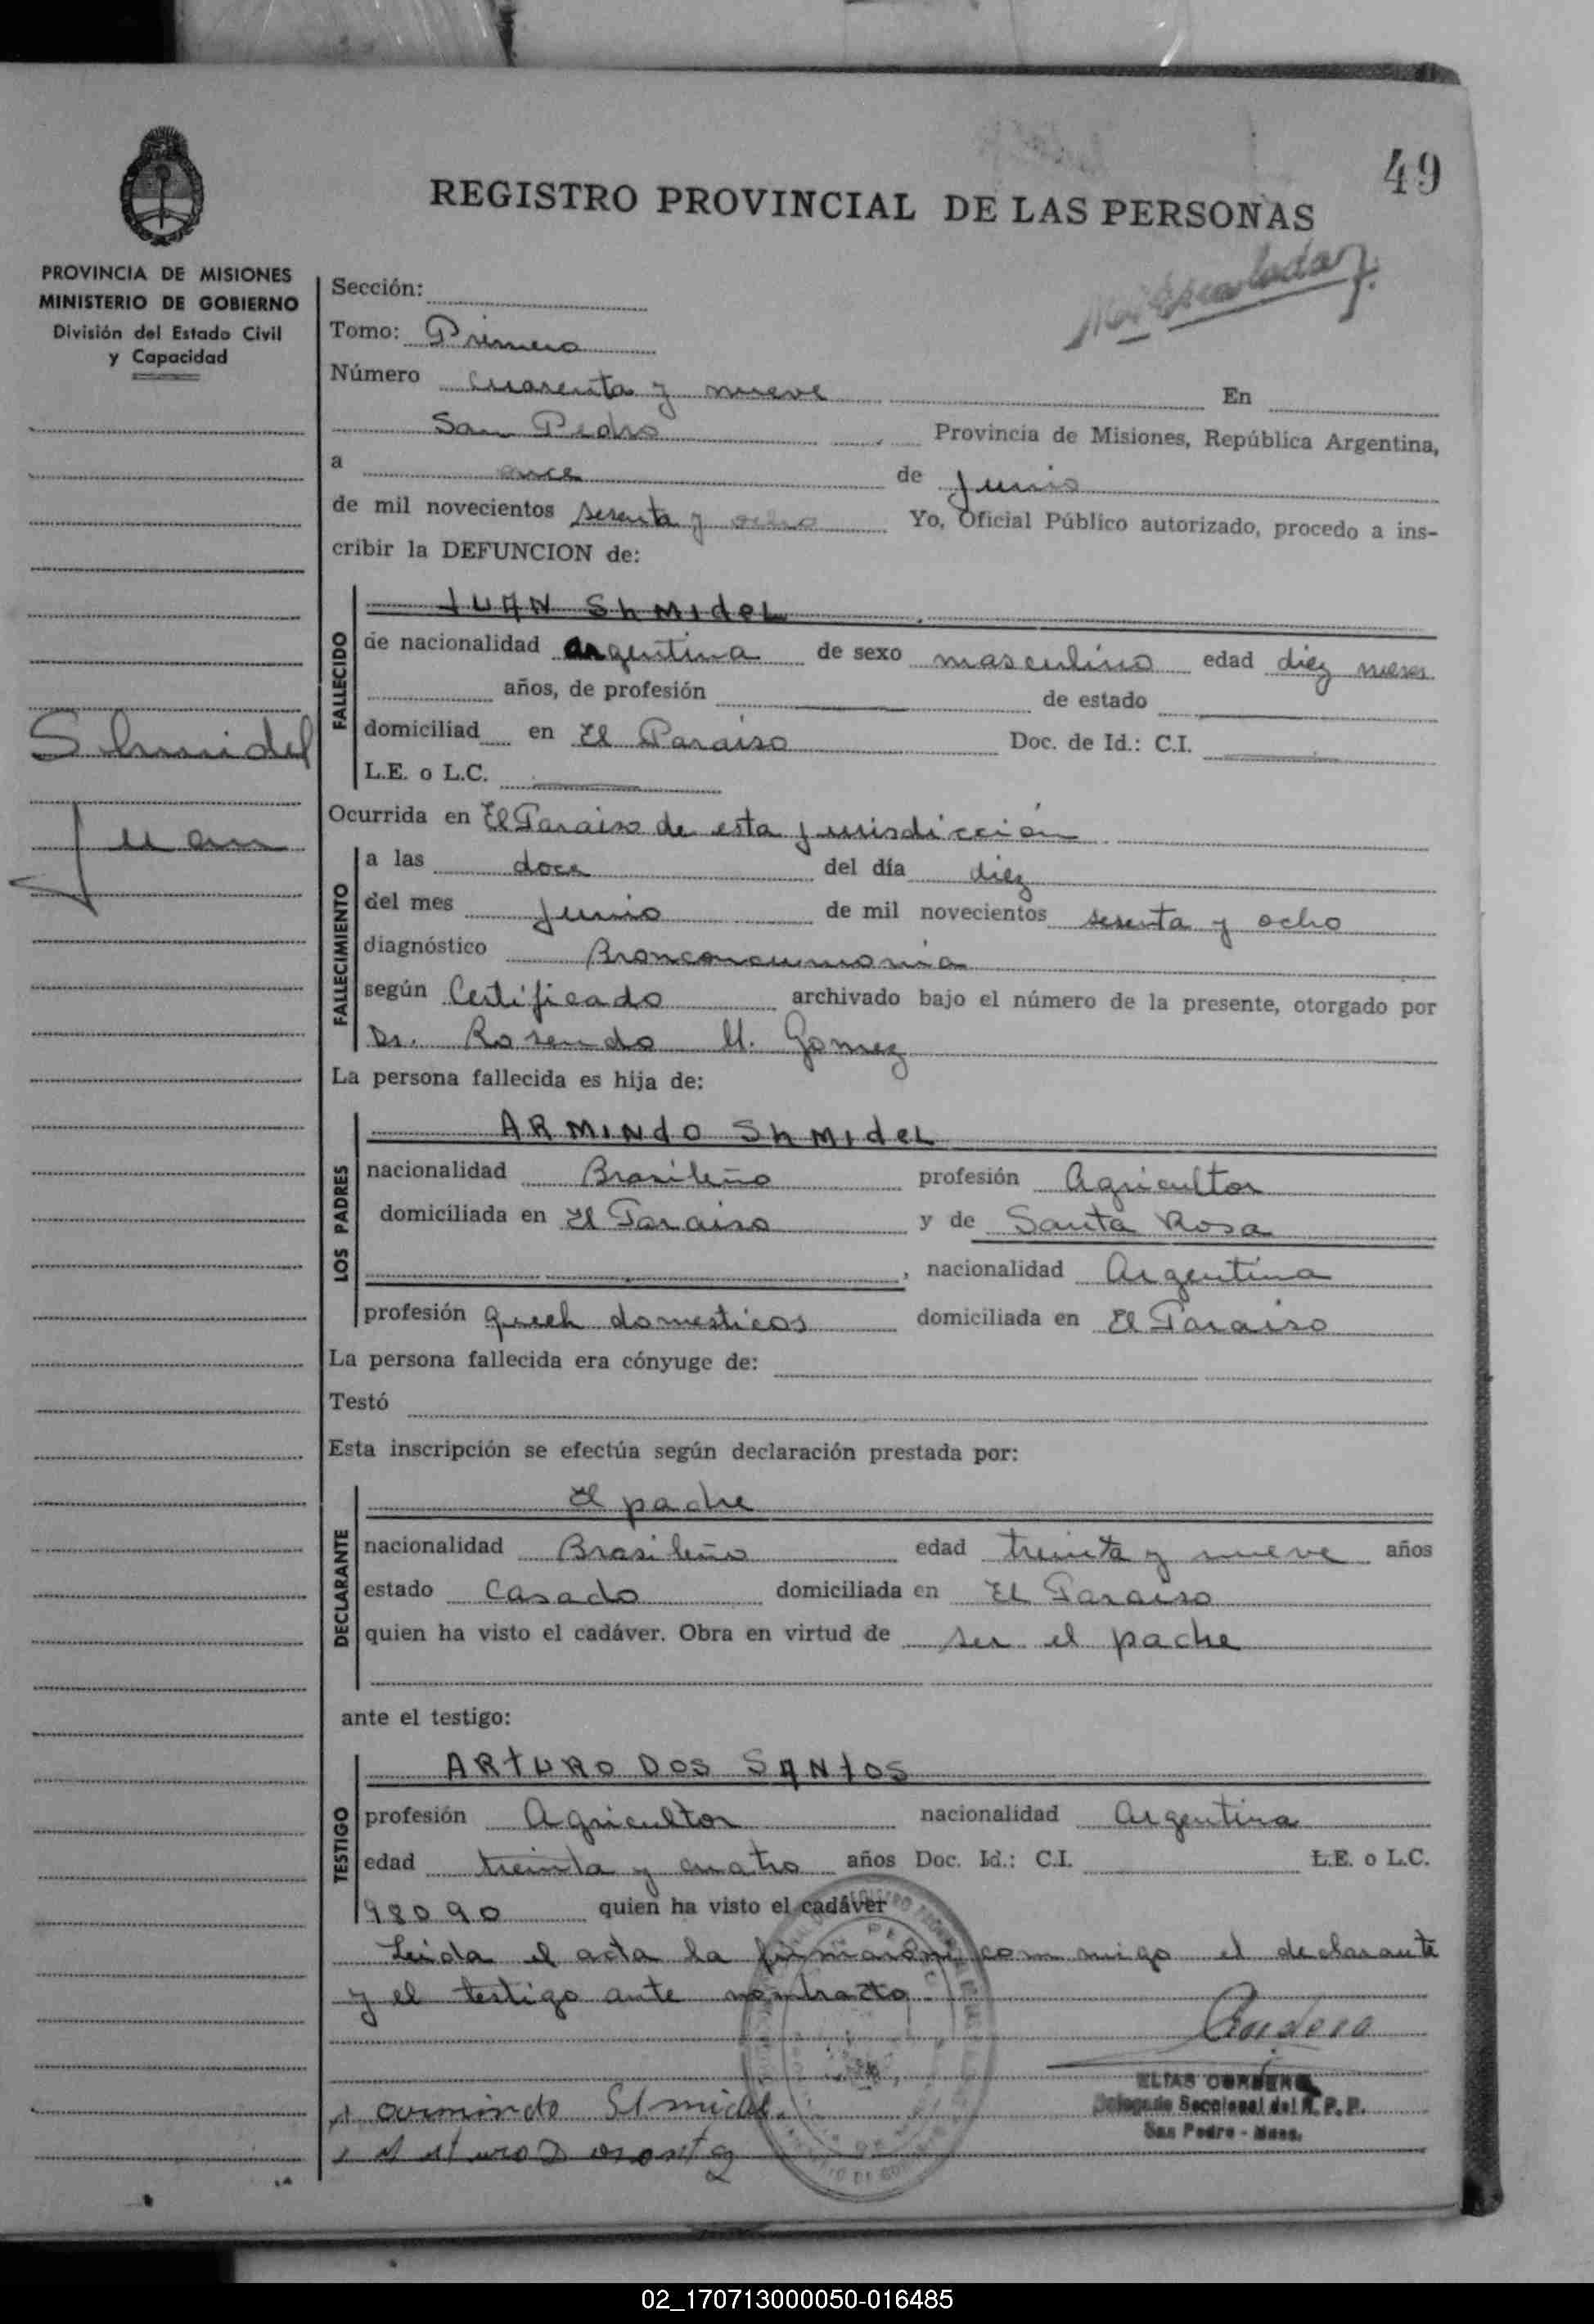 49
REGISTRO PROVINCIAL DE LAS PERSONAS
PROVINCIA DE MISIONES
MINISTERIO DE GOBIERNO
División del Estado Civil
y Capacidad
Sección:
Tomo: Primero
Número cuarenta y nueve En
San Pedro, Provincia de Misiones, República Argentina,
a once de Junio
de mil novecientos sesenta y ocho Yo, Oficial Público autorizado, procedo a ins-
cribir la DEFUNCION de:
JUAN ShMIdeL
FALLECIDO
de nacionalidad argentina de sexo masculino edad diez meses
años, de profesión de estado
domiciliad en El Paraiso Doc. de Id.: C.I.
L.E. o L.C.
Shmidel
Juan
Ocurrida en El Paraiso de esta jurisdicción
FALLECIMIENTO
a las doce del día diez
del mes Junio de mil novecientos sesenta y ocho
diagnóstico Bronconeumonia
según Certificado archivado bajo el número de la presente, otorgado por
Dr. Rosendo M. Gomez
La persona fallecida es hija de:
LOS PADRES
ARMINdO ShMIdeL
nacionalidad Brasileño profesión Agricultor
domiciliada en El Paraiso y de Santa Rosa
, nacionalidad Argentina
profesión queh domesticos domiciliada en El Paraiso
La persona fallecida era cónyuge de:
Testó
Esta inscripción se efectúa según declaración prestada por:
DECLARANTE
El padre
nacionalidad Brasileño edad treinta y nueve años
estado Casado domiciliada en El Paraiso
quien ha visto el cadáver. Obra en virtud de ser el padre
ante el testigo:
TESTIGO
ARTURO DOS SANtOS
profesión Agricultor nacionalidad Argentina
edad treinta y cuatro años Doc. Id.: C.I. L.E. o L.C.
98090 quien ha visto el cadáver
Leida el acta la firmaron com migo el declarante
y el testigo ante nombrado.
ELIAS CORDERO
Delegado Seccional del R. P. P.
San Pedro - Mnes.
armindo
02_170713000050-016485